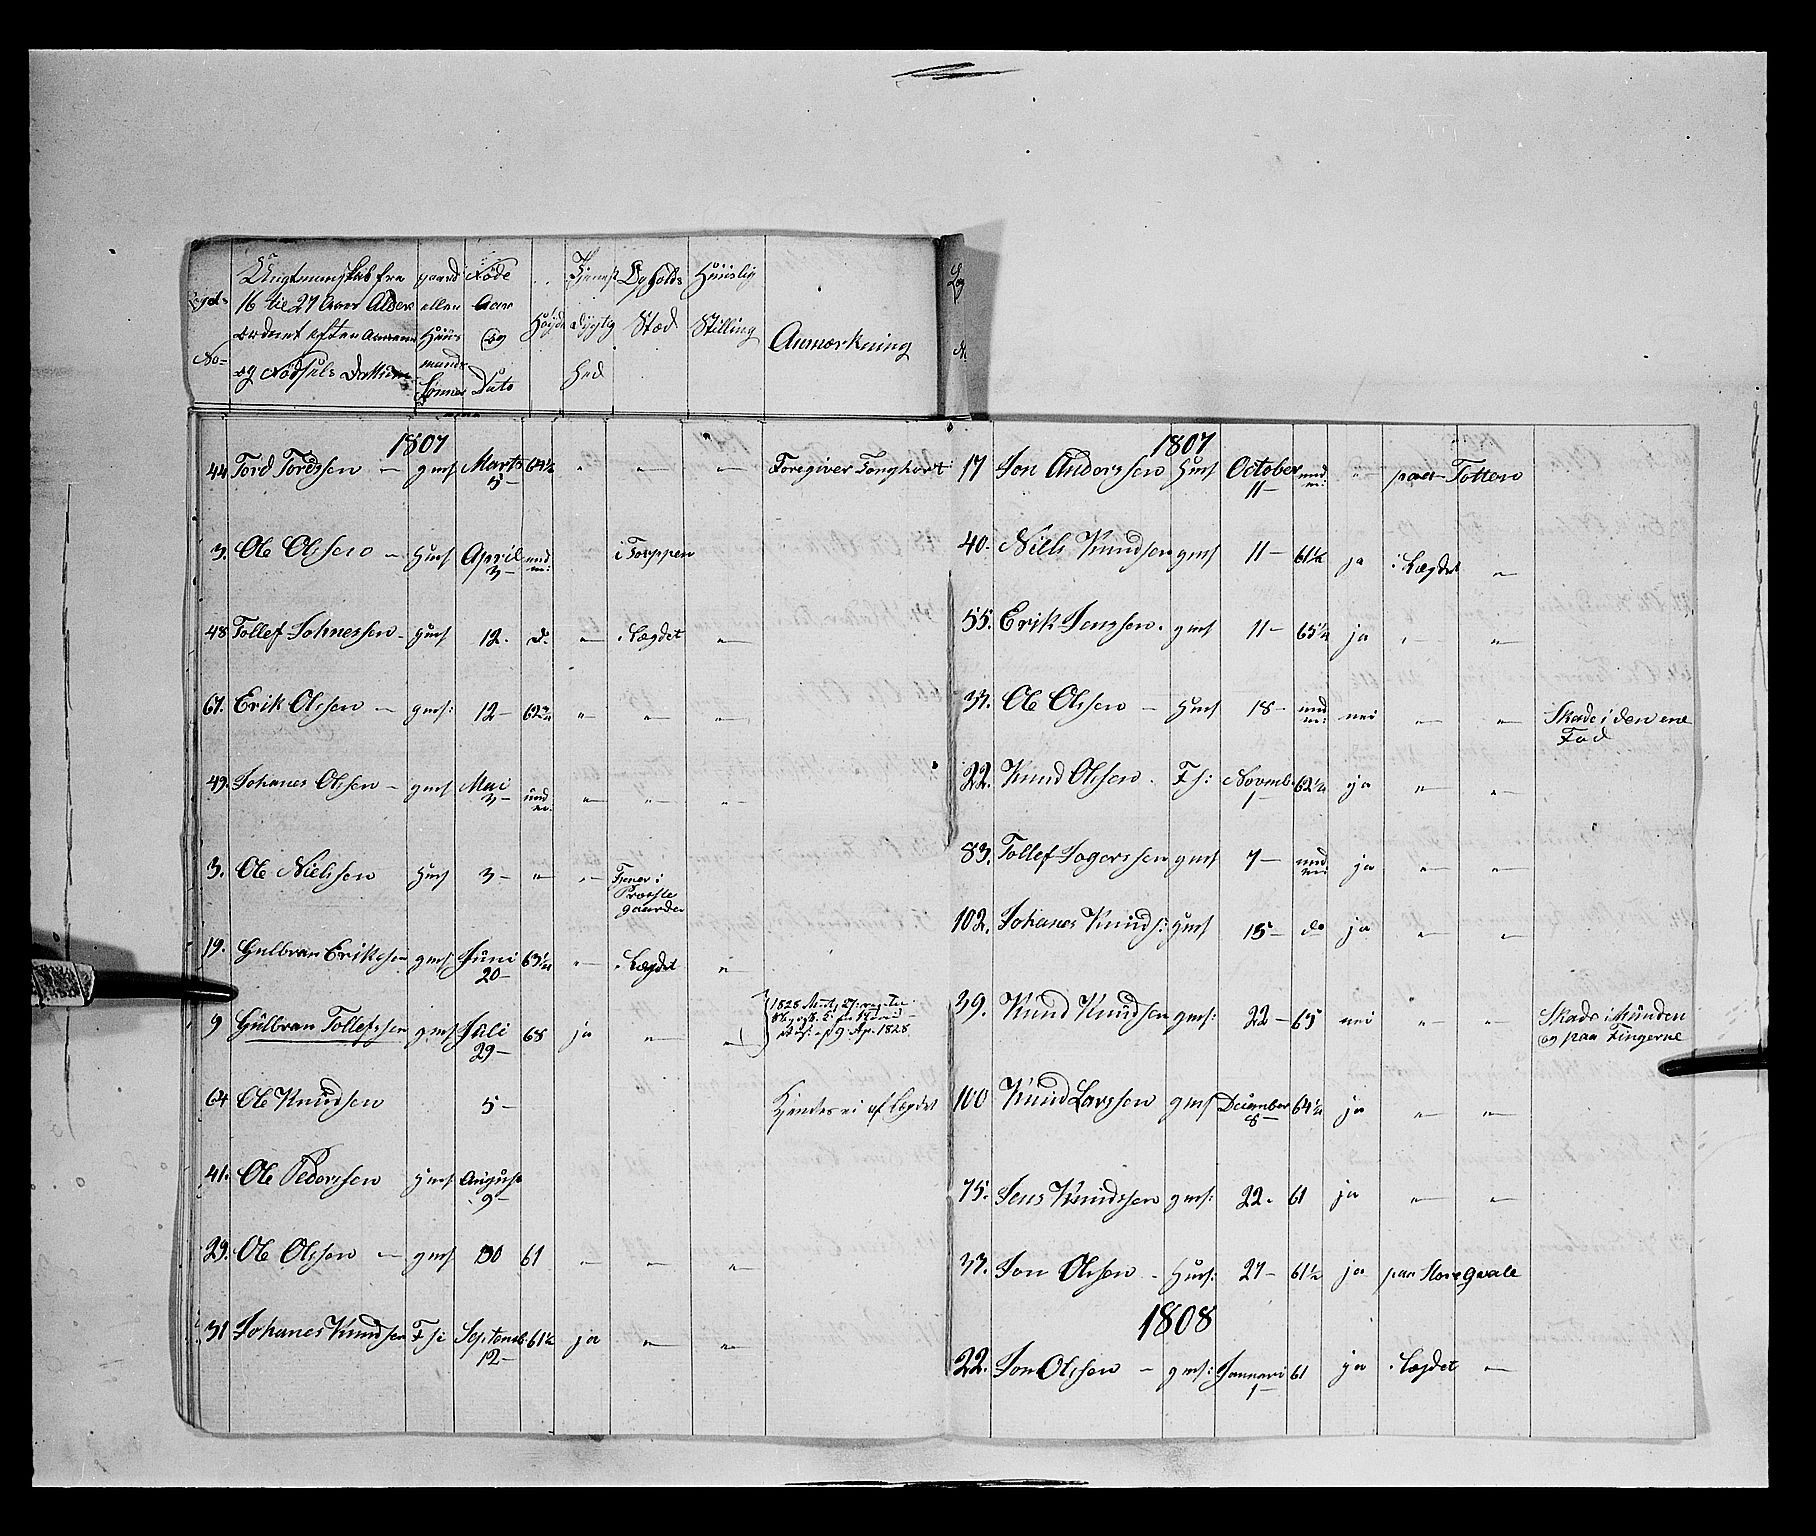 Lægds No- | Ungtmandskab fra 16 til 27 Aars Alder ordnet efter Aarene og Fødsels Datum | gaard eller Huus mands Sønner | Føde Aar og Dato | Høyde | Tjenst Dygtig hed | Opholds Sted | Huuslig Stilling | Anmærkning
1807
44. Tord Tordssen — gms Marts 5— 64½ " — — Foregiver Tunghørt
3. Ole Olssen — Hms April 3— und m: i Torppen
48 Tollef Johnessen — Hms 12. do — i Lægdet —
67. Erik Olssen — gms: 12— 62¾ — — —
49. Johanes Olssen — gms Mai 3— und m: — — —
3. Ole Nielssen Hms 3— " — Tjener i Præste gaarden
19. Gulbran Erikssen gms Juni 20— 63¼ — i Lægdet "
9 Gulbran Tollefssen gms Juli 29— 68 ja — — 1828
9 Apr. 1828
64 Ole Knudsen 5— Kjendes ei af Lægdet
41. Ole Pedersen Hms August 9—
29. Ole Olssen — gms 30 61 — — —
31 Johanes Knudsen F s: Septemb 12— 61½ ja — —
1807
17 Jon Anderssen Hms October 11— und m: " paa Totten
40. Niels Knudsen gms 11— 61½ ja i Lægdet —
55. Erik Jensen . gms 11— 65½ ja — —
37. Ole Olssen — Hms 18— und m: nei — — Skade i den ene Fod
22. Knud Olssen . F s: Novemb. 1— 62½ ja — —
83. Tollef Jogerssen gms 7— und m: ja — —
102. Johanes Knuds: Hms 15— do ja — —
39. Knud Knudsen gms: 22— 65 nei — — Skade i Munden og paa Fingerne
100 Knud Larssen gms December 8— 64½ ja — —
75. Jens Knudssen gms: 22. 61 ja — —
37. Jon Olssen . Hms: 27— 61½ ja paa Store Qvale
1808
22. Jon Olssen — gms: Januari 1— 61 ja i Lægdet —